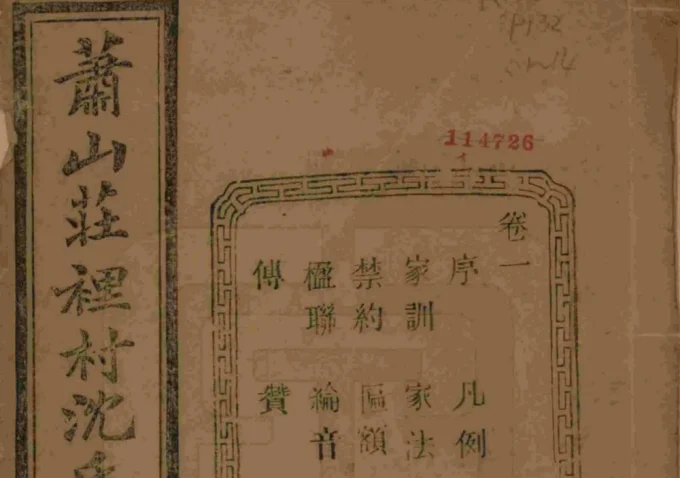 蕭山莊裡村沈氏
114726
卷一
序 凡例
家訓 家法
禁約 匾額
楹聯 綸音
傳 贊